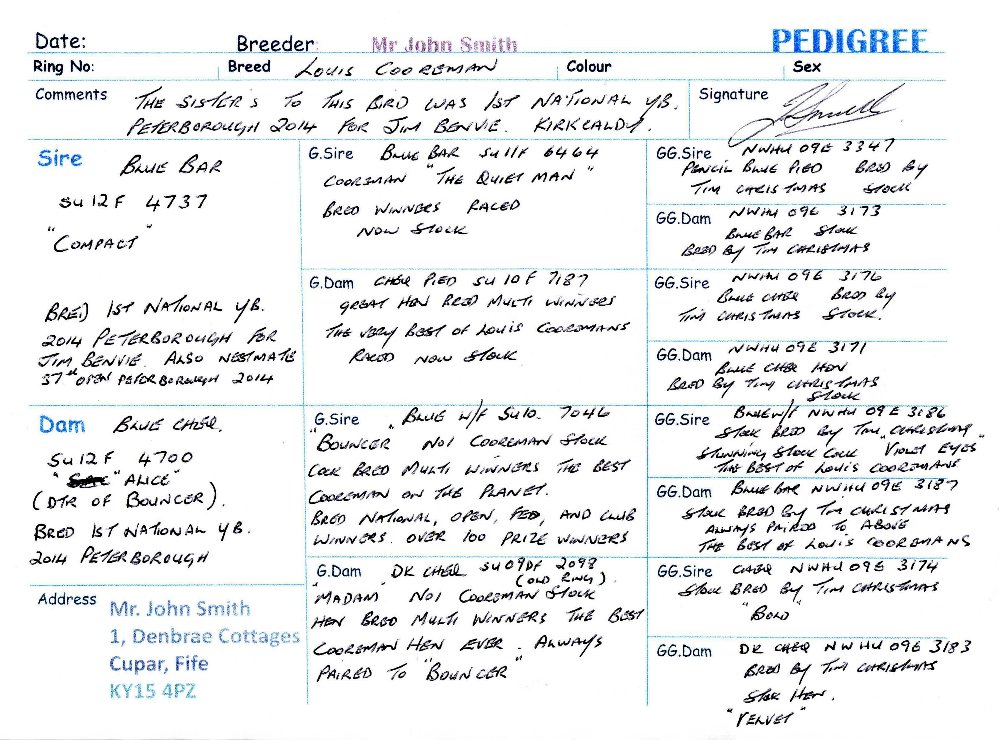 Date: Breeder: Mr John Smith PEDIGREE
Ring No: Breed LOUIS COOREMAN Colour Sex
Comments THE SISTER'S TO THIS BIRD WAS 1ST NATIONAL YB.
PETERBOROUGH 2014 FOR JIM BENVIE. KIRKCALDY.
Signature
Sire BLUE BAR
SU12F 4737
"COMPACT"
BRED 1ST NATIONAL YB.
2014 PETERBOROUGH FOR
JIM BENVIE. ALSO NESTMATE
37th OPEN PETERBOROUGH 2014
G.Sire BLUE BAR SU11F 6464
COOREMAN "THE QUIET MAN"
BRED WINNERS RACED
NOW STOCK
G.Dam CHEQ PIED SU10F 7187
GREAT HEN BRED MULTI WINNERS
THE VERY BEST OF LOUIS COOREMANS
RACED NOW STOCK
GG.Sire NWHU 09E 3347
PENCIL BLUE PIED BRED BY
TIM CHRISTMAS STOCK
GG.Dam NWHU 09E 3173
BLUE BAR STOCK
BRED BY TIM CHRISTMAS
GG.Sire NWHU 09E 3176
BLUE CHEQ BRED BY
TIM CHRISTMAS STOCK.
GG.Dam NWHU 09E 3171
BLUE CHEQ HEN
BRED BY TIM CHRISTMAS
STOCK
Dam BLUE CHEQ.
SU12F 4700
"ALICE"
(DTR OF BOUNCER).
BRED 1ST NATIONAL YB.
2014 PETERBOROUGH
G.Sire BLUE W/F SU10. 7046
"BOUNCER" NO1 COOREMAN STOCK
COCK BRED MULTI WINNERS THE BEST
COOREMAN ON THE PLANET.
BRED NATIONAL, OPEN, FED, AND CLUB
WINNERS. OVER 100 PRIZE WINNERS
G.Dam DK CHEQ SU09DF 2098
(OLD RING).
"MADAM" NO1 COOREMAN STOCK
HEN BRED MULTI WINNERS THE BEST
COOREMAN HEN EVER. ALWAYS
PAIRED TO "BOUNCER"
GG.Sire BLUE W/F NWHU 09E 3186
STOCK BRED BY TIM CHRISTMAS
STUNNING STOCK COCK "VIOLET EYES"
THE BEST OF LOUIS COOREMANS
GG.Dam BLUE BAR NWHU 09E 3187
STOCK BRED BY TIM CHRISTMAS
ALWAYS PAIRED TO ABOVE
THE BEST OF LOUIS COOREMANS
GG.Sire CHEQ NWHU 09E 3174
STOCK BRED BY TIM CHRISTMAS
"BOLD"
GG.Dam DK CHEQ NWHU 09E 3183
BRED BY TIM CHRISTMAS
STOCK HEN.
"VELVET"
Address Mr. John Smith
1, Denbrae Cottages
Cupar, Fife
KY15 4PZ